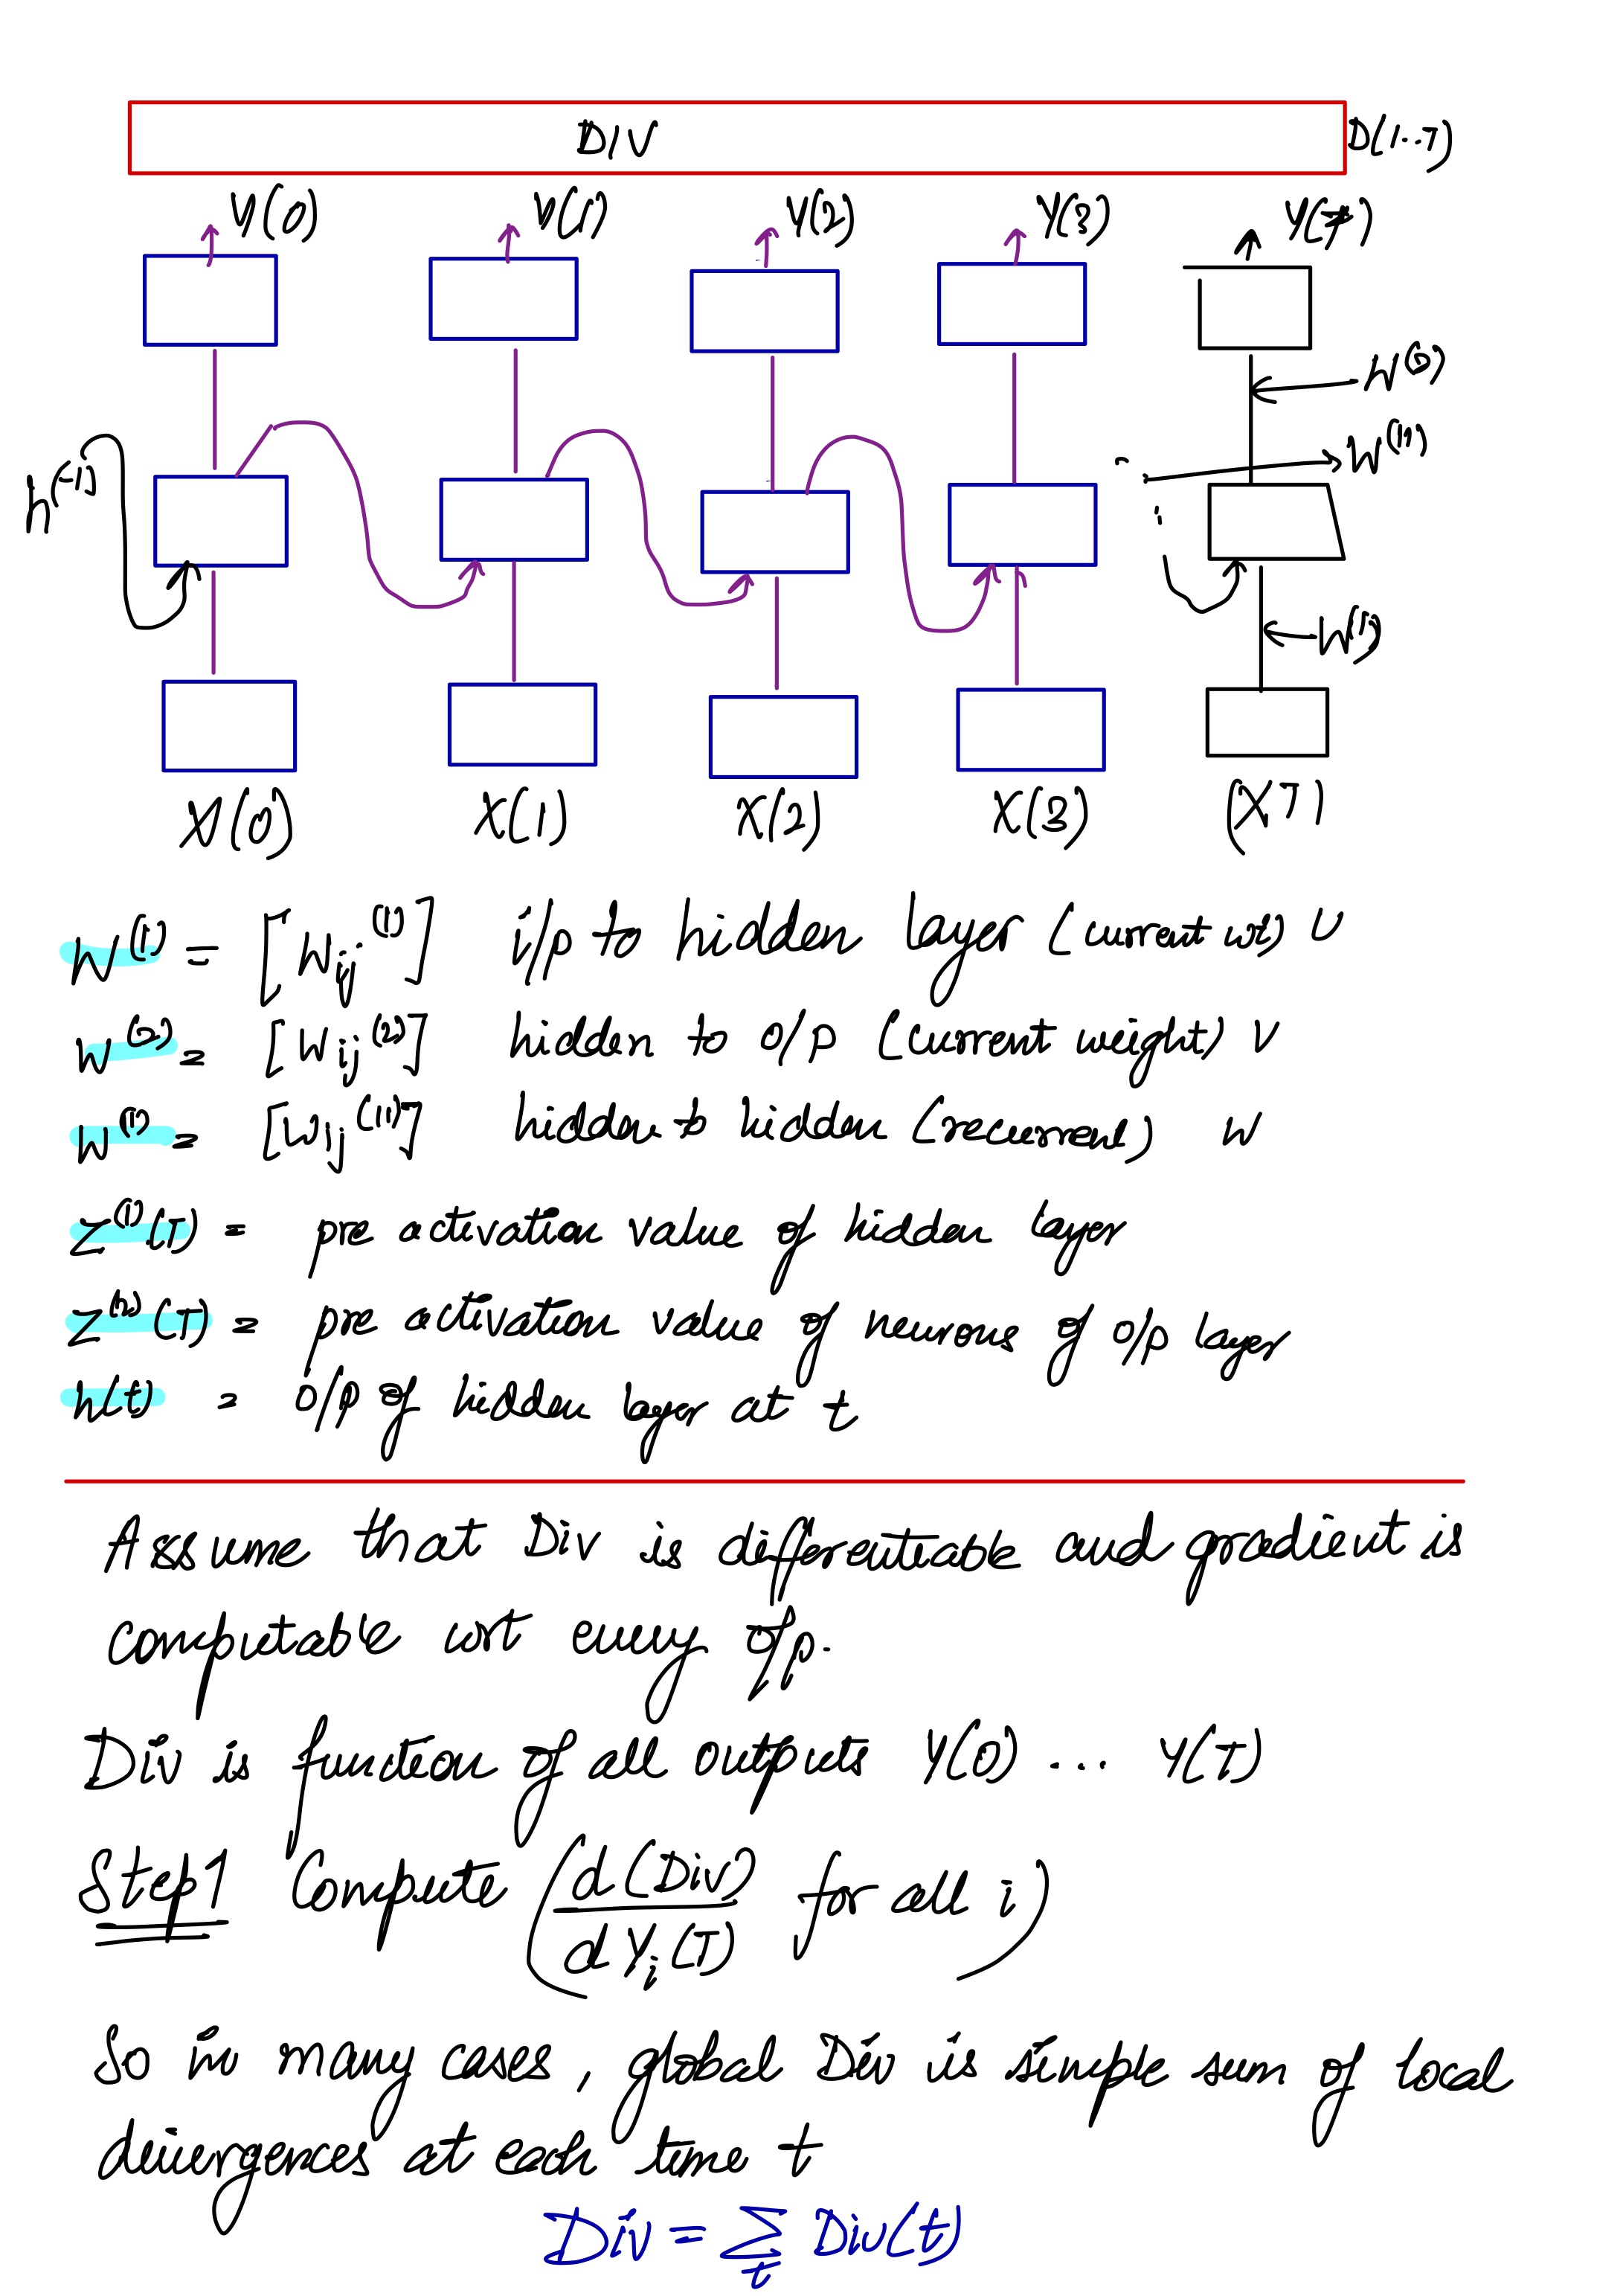 DIV D(1..T)
Y(0) Y(1) Y(2) Y(3) Y(T)
W^(2)
h^(-1) W^(11)
W^(1)
X(0) X(1) X(2) X(3) (XT)
W^(1) = [W_ij^(1)] i/p to hidden layer (current wt) U
W^(2) = [W_ij^(2)] hidden to o/p (current weight) V
W^(11) = [W_ij^(11)] hidden to hidden (recurrent) W
Z^(1)(T) = pre activation value of hidden layer
Z^(2)(T) = pre activation value of neurons of o/p layer
h(t) = o/p of hidden layer at t
Assume that Div is differenteable and gradient is
computable wrt every o/p.
Div is function of all outputs Y(0) ... Y(T)
Step1 Compute (d(Div)/dY_i(T) for all i)
So in many cases, global Div is simple sum of local
divergences at each time t
Div = Σ_t Div(t)